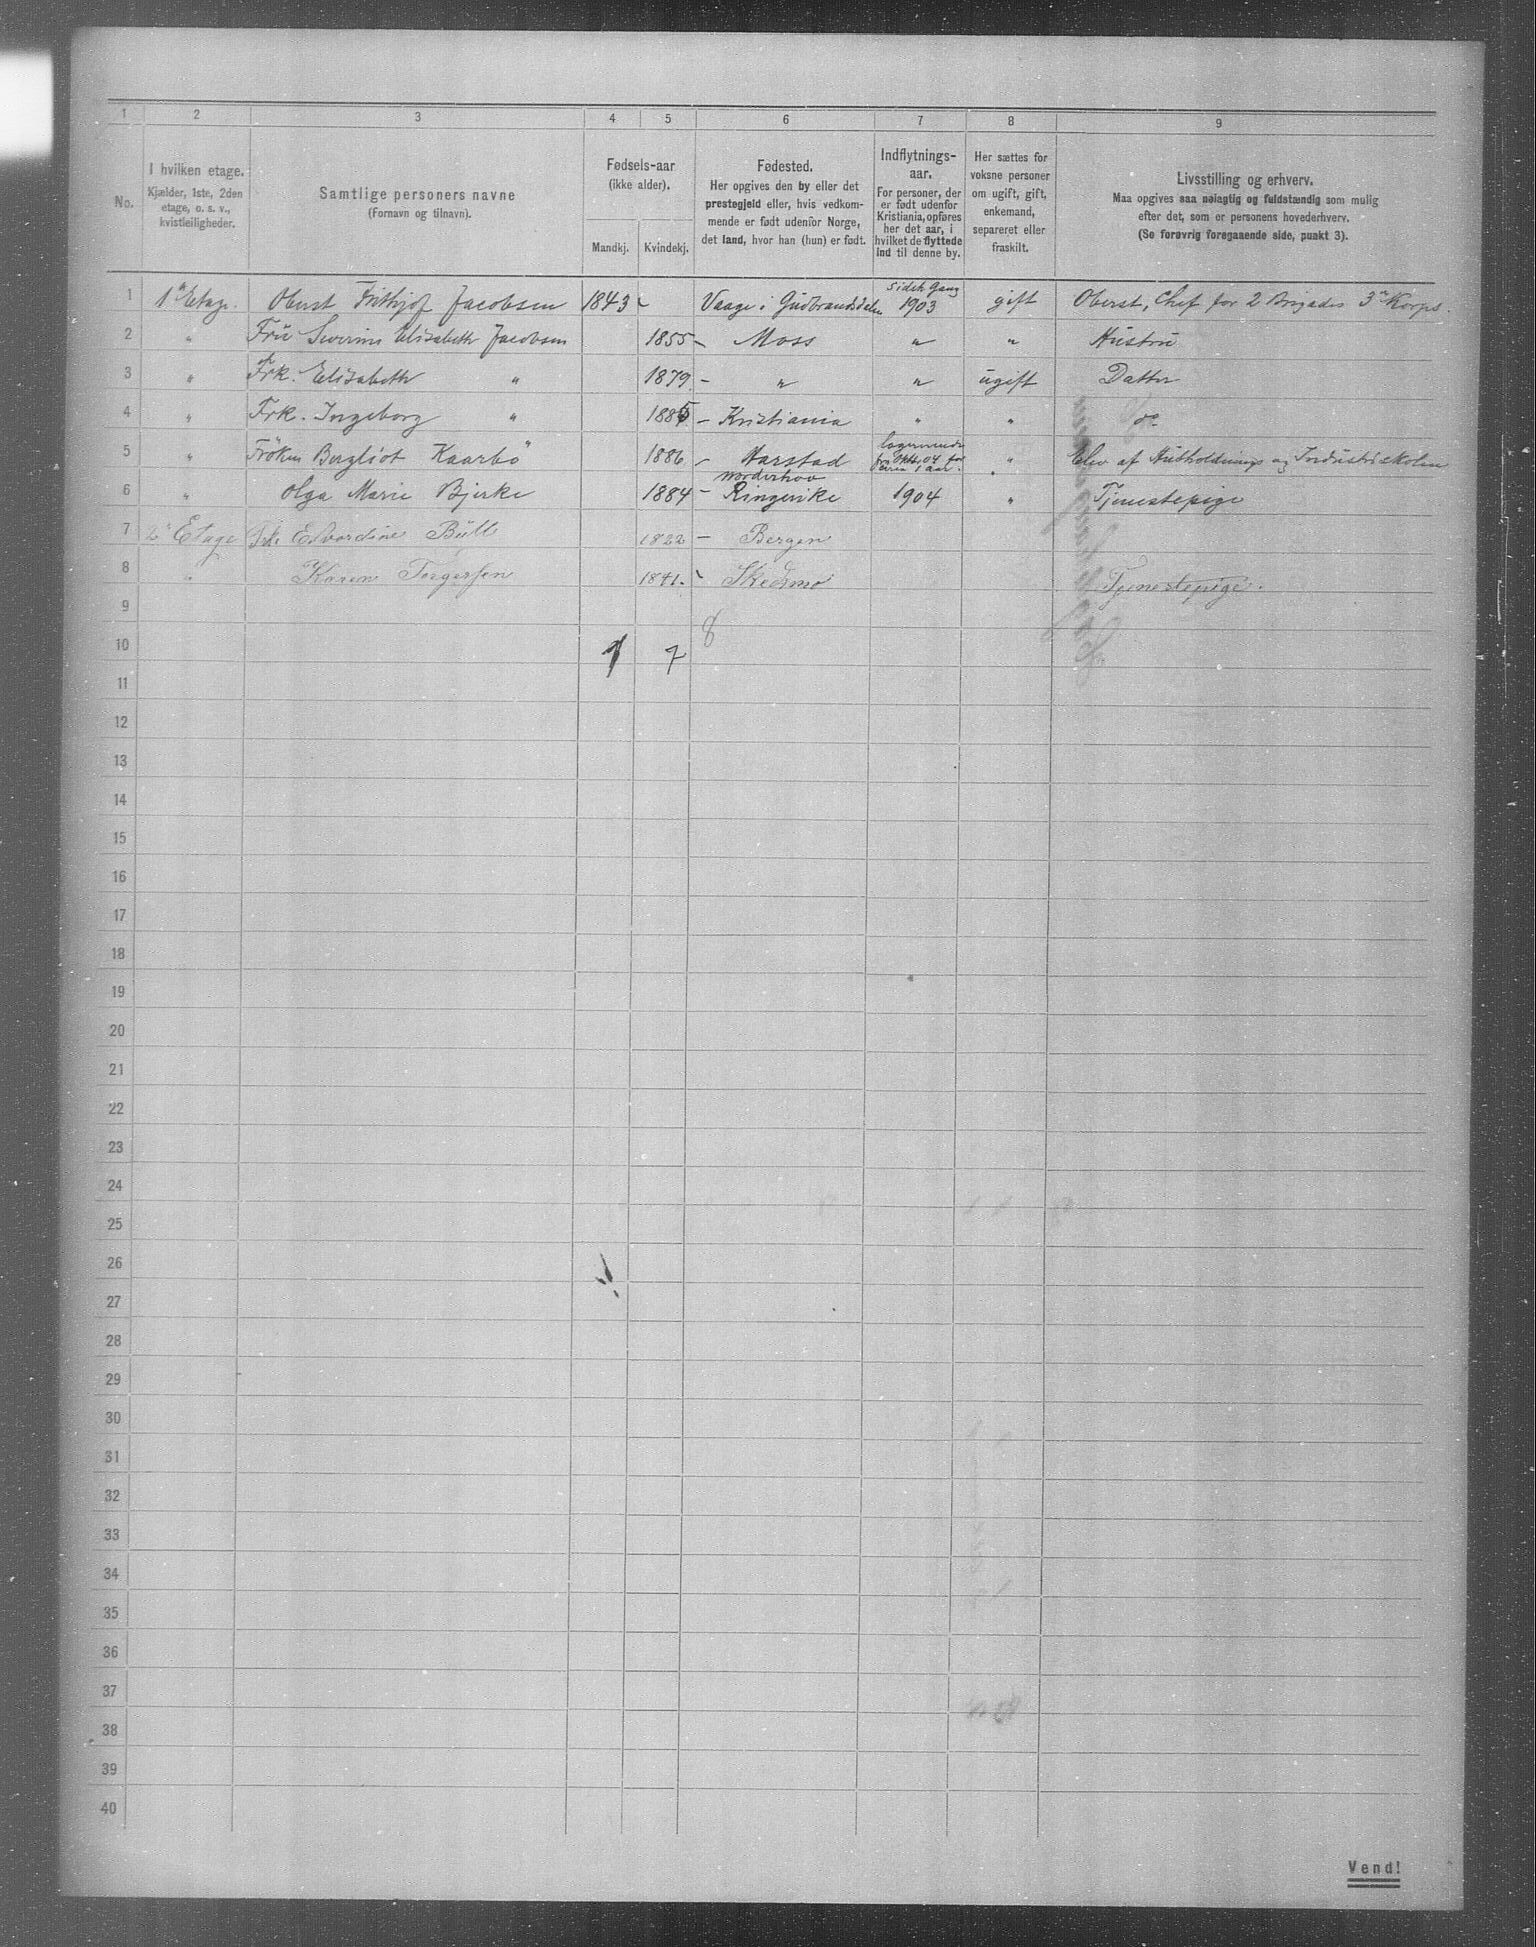 1 2 3 4 5 6 7 8 9
No.
I hvilken etage.
Kjælder, 1ste, 2den
etage, o. s. v.,
kvistleiligheder.
Samtlige personers navne
(Fornavn og tilnavn).
Fødsels-aar
(ikke alder).
Mandkj. Kvindekj.
Fødested.
Her opgives den by eller det
prestegjeld eller, hvis vedkom-
mende er født udenfor Norge,
det land, hvor han (hun) er født.
Indflytnings-
aar.
For personer, der
er født udenfor
Kristiania, opføres
her det aar, i
hvilket de flyttede
ind til denne by.
Her sættes for
voksne personer
om ugift, gift,
enkemand,
separeret eller
fraskilt.
Livsstilling og erhverv.
Maa opgives saa nøiagtig og fuldstændig som mulig
efter det, som er personens hovederhverv.
(Se forøvrig foregaaende side, punkt 3).
1 1ste Etage. Oberst Frithjof Jacobsen 1843 - Vaage i Gudbrandsdalen sidste Gang 1903 gift Oberst, Chef for 2 Brigades 3die Korps.
2 " Fru Severine Elisabeth Jacobsen 1855 - Moss " " Hustru
3 " Frk. Elisabeth " 1879 - " " ugift Datter
4 " Frk. Ingeborg " 1885 - Kristiania " " do
5 " Frøken Bergliot Kaarbø 1886 - Harstad " Elev af Husholdnings og Industriskolen
6 " Olga Marie Bjerke 1884 - Norderhov Ringerike 1904 " Tjenestepige
7 2 Etage Frk. Edvardine Büll 1822 - Bergen
8 " Karen Torgersen 1841. - Skedsmo Tjenestepige.
9
8
10 1 7
11
12
13
14
15
16
17
18
19
20
21
22
23
24
25
26
27
28
29
30
31
32
33
34
35
36
37
38
39
40
Vend!